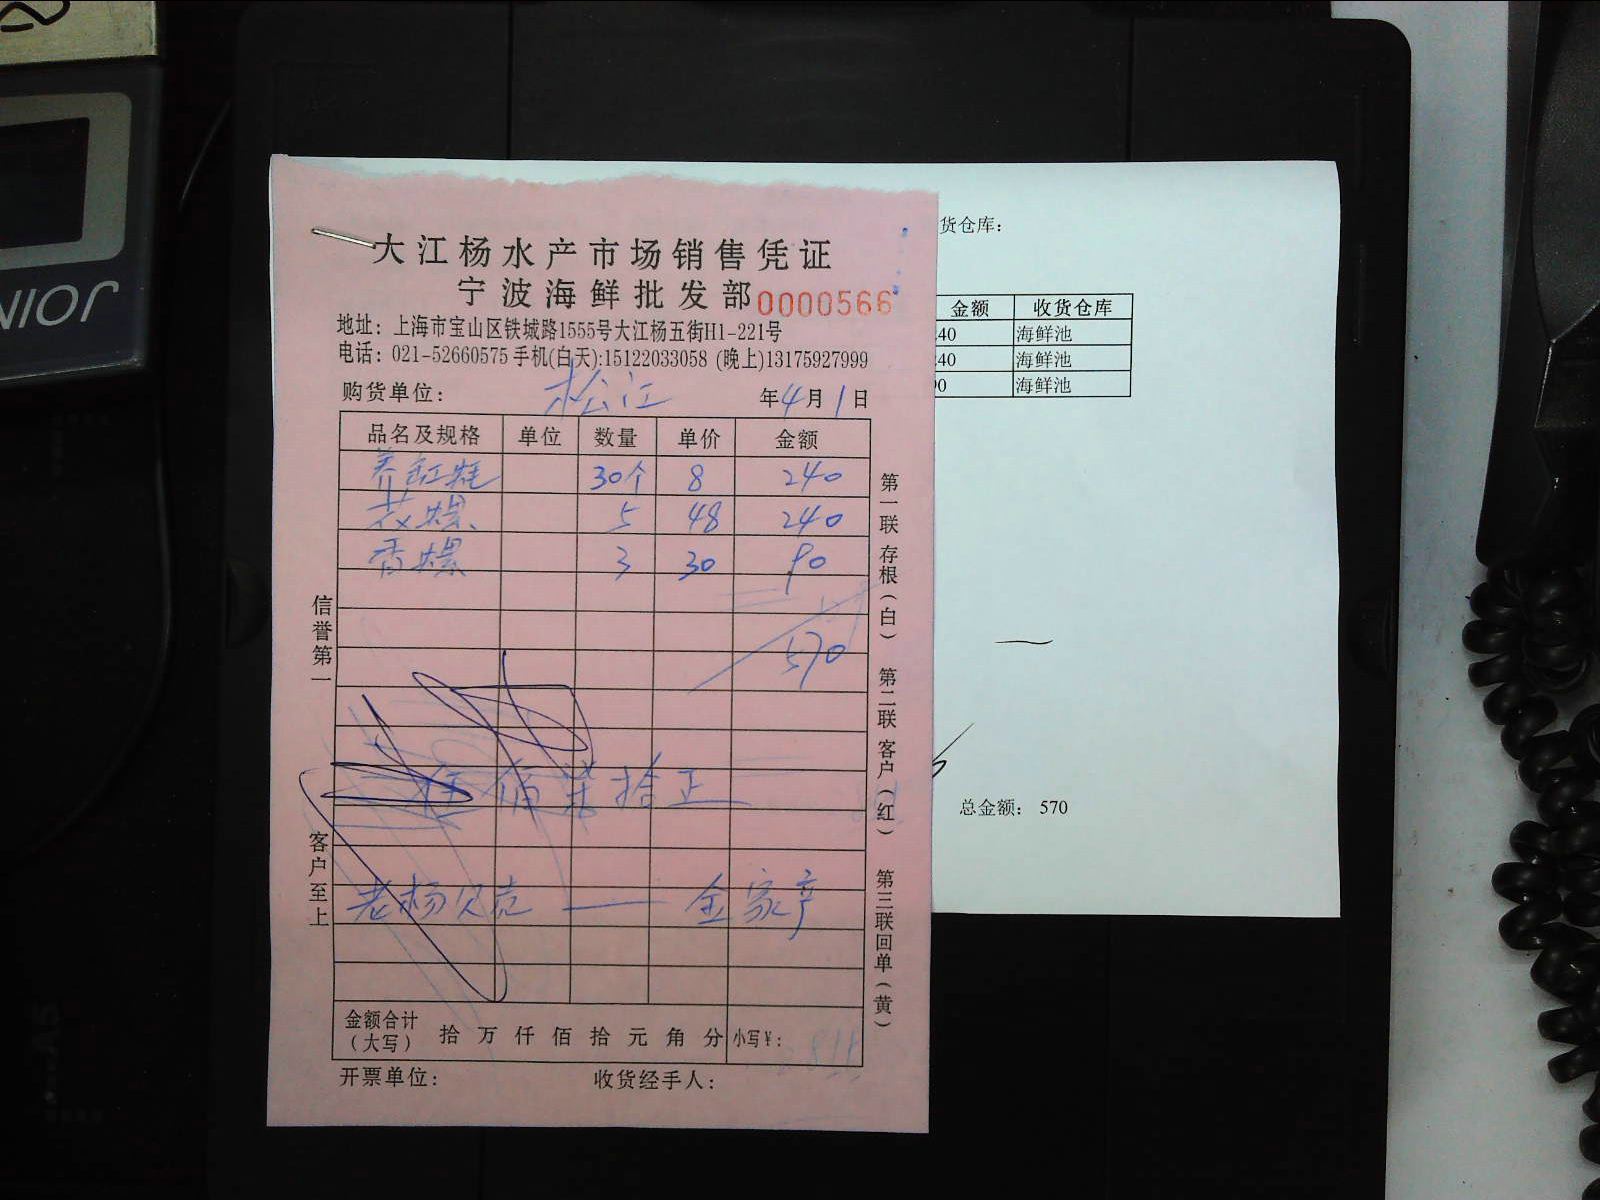 JOIN
大江杨水产市场销售凭证
宁波海鲜批发部 0000566
地址：上海市宝山区铁城路1555号大江杨五街H1-221号
电话：021-52660575 手机(白天):15122033058 (晚上)13175927999
购货单位： 松江 年4月1日
品名及规格 单位 数量 单价 金额
养缸蚝 30个 8 240
花螺 5 48 240
香螺 3 30 90
570
伍佰柒拾正
老杨贝壳 — 金家产
金额合计（大写） 拾 万 仟 佰 拾 元 角 分 小写￥：
开票单位： 收货经手人：
信誉第一
客户至上
第一联 存根（白） 第二联 客户（红） 第三联 回单（黄）
货仓库：
金额 收货仓库
40 海鲜池
40 海鲜池
0 海鲜池
总金额： 570